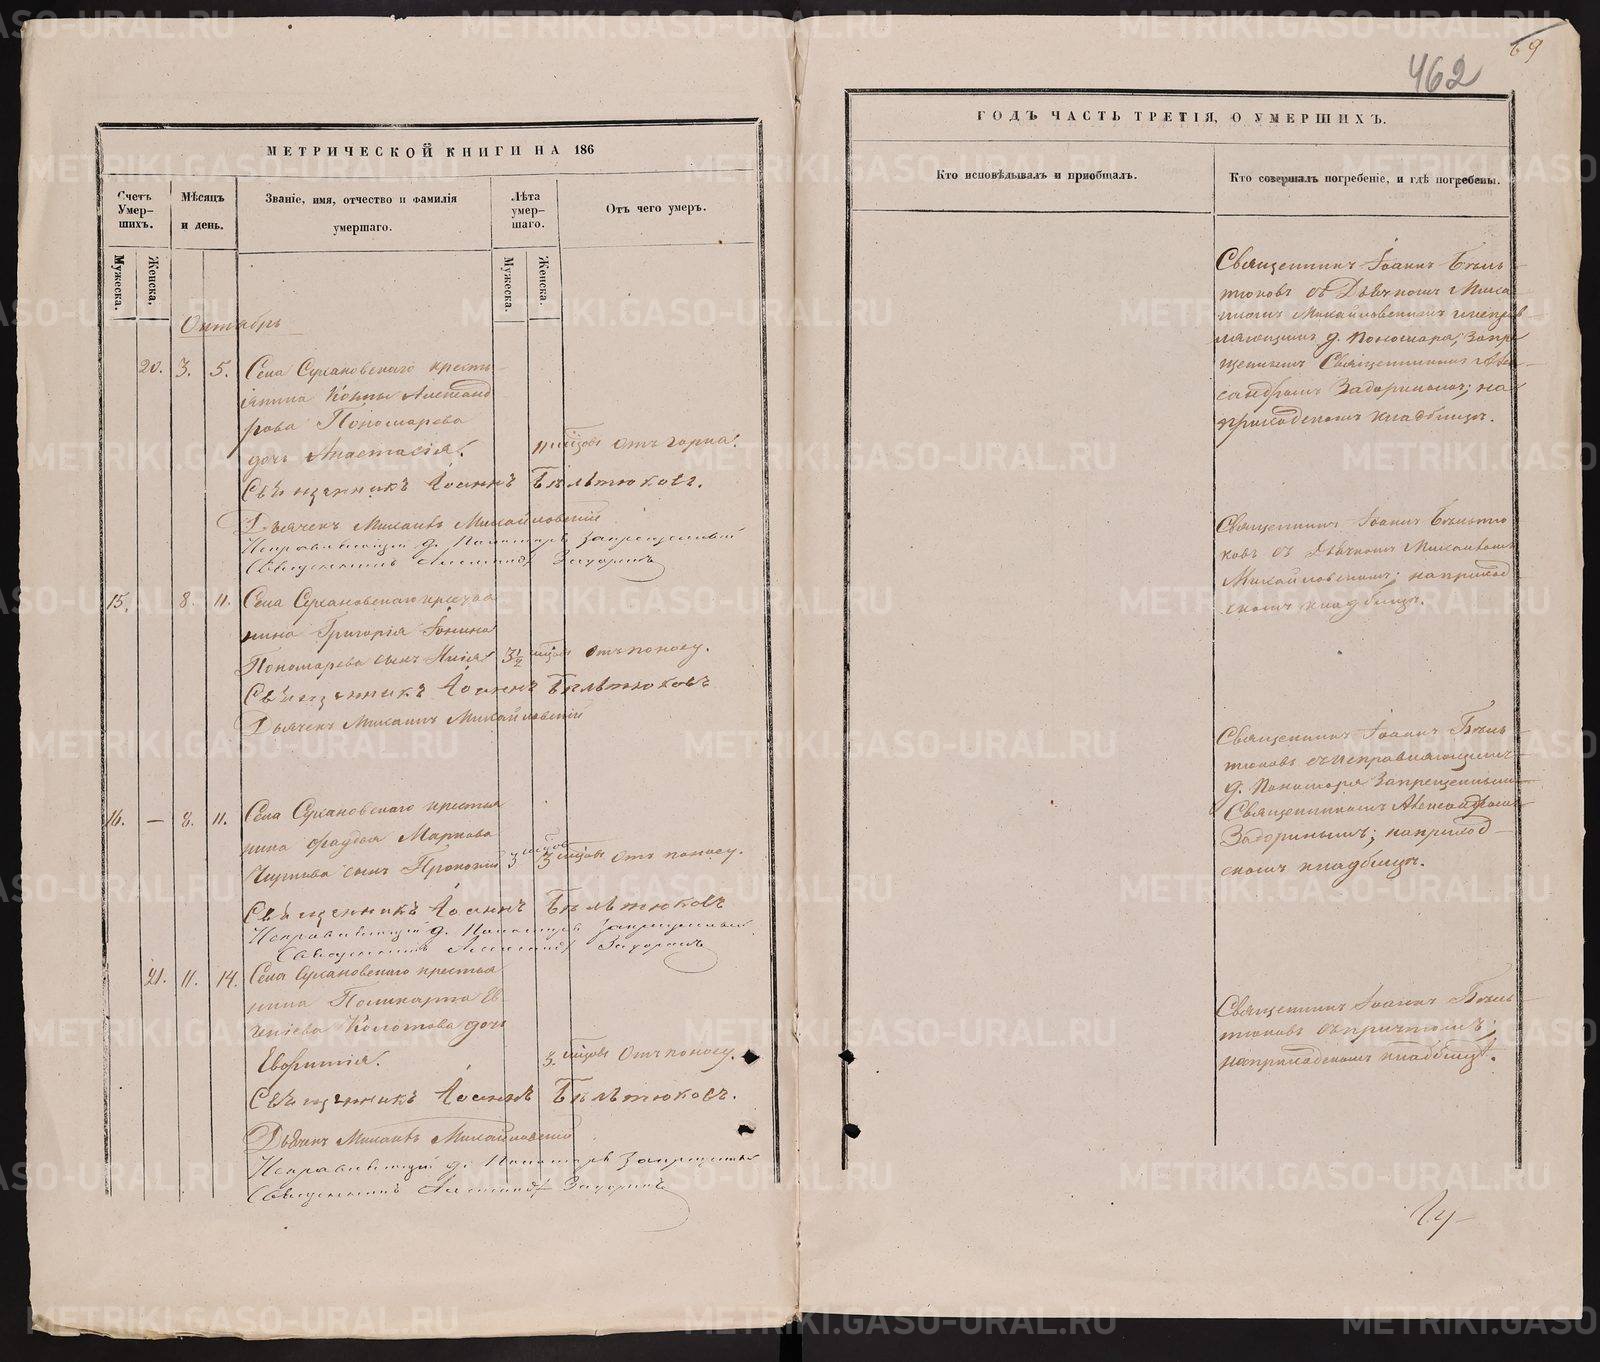 69
462
МЕТРИЧЕСКОЙ КНИГИ НА 186
Счетъ Умер-шихъ.
Мѣсяцъ и день.
Званіе, имя, отчество и фамилія умершаго.
Лѣта умер-шаго.
Отъ чего умеръ.
Мужеска.
Женска.
Мужеска.
Женска.
Октябрь
20. 3. 5. Села Сухановскаго кресть-
янина
Пономарева
дочь Анастасія.
11 мѣсцовъ Отъ горла.
Священникъ Іоаннъ Бѣльтюковъ.
Дьячекъ Михаилъ Михайловскій
Исправляющій д. Пономаря запрещенный
Священникъ Александръ Задоринъ
15. 8. 11. Села Сухановскаго крестья
нина Григорія Іонина
Пономарева сынъ
3½ мѣсцовъ Отъ поносу.
Священникъ Іоаннъ Бѣльтюковъ
Дьячекъ Михаилъ Михайловскій
16. — 8. 11. Села Сухановскаго крестья
нина Фаддея Маркова
сынъ Прокопій
3 мѣсцов 3 мѣсцовъ Отъ поносу.
Священникъ Іоаннъ Бѣльтюковъ
Исправляющій д. Пономаря запрещенный
Священникъ Александръ Задоринъ
21. 11. 14. Села Сухановскаго крестья
нина Поликарпа Ев
геніева дочь
Евфимія.
3. мѣсцовъ Отъ поносу.
Священникъ Іоаннъ Бѣльтюковъ.
Дьячекъ Михаилъ Михайловскій
Исправляющій д. Пономаря запрещенный
Священникъ Александръ Задоринъ
ГОДЪ ЧАСТЬ ТРЕТІЯ, О УМЕРШИХЪ.
Кто исповѣдывалъ и пріобщалъ.
Кто совершалъ погребеніе, и гдѣ погребены.
Священникъ Іоаннъ Бѣль-
тюковъ съ Дьячкомъ Миха
иломъ Михайловскимъ и исправ-
ляющимъ д. Пономаря, запре
щеннымъ Священникомъ Алек-
сандромъ Задоринымъ; на
приходскомъ кладбищѣ.
Священникъ Іоаннъ Бѣльтю
ковъ съ Дьячкомъ Михаиломъ
Михайловскимъ; на приход
скомъ кладбищѣ.
Священникъ Іоаннъ Бѣль-
тюковъ съ исправляющимъ
д. Пономаря Запрещеннымъ
Священникомъ Александромъ
Задоринымъ; на приход-
скомъ кладбищѣ.
Священникъ Іоаннъ Бѣль-
тюковъ съ причтомъ;
на приходскомъ кладбищѣ.
METRIKI.GASO-URAL.RU